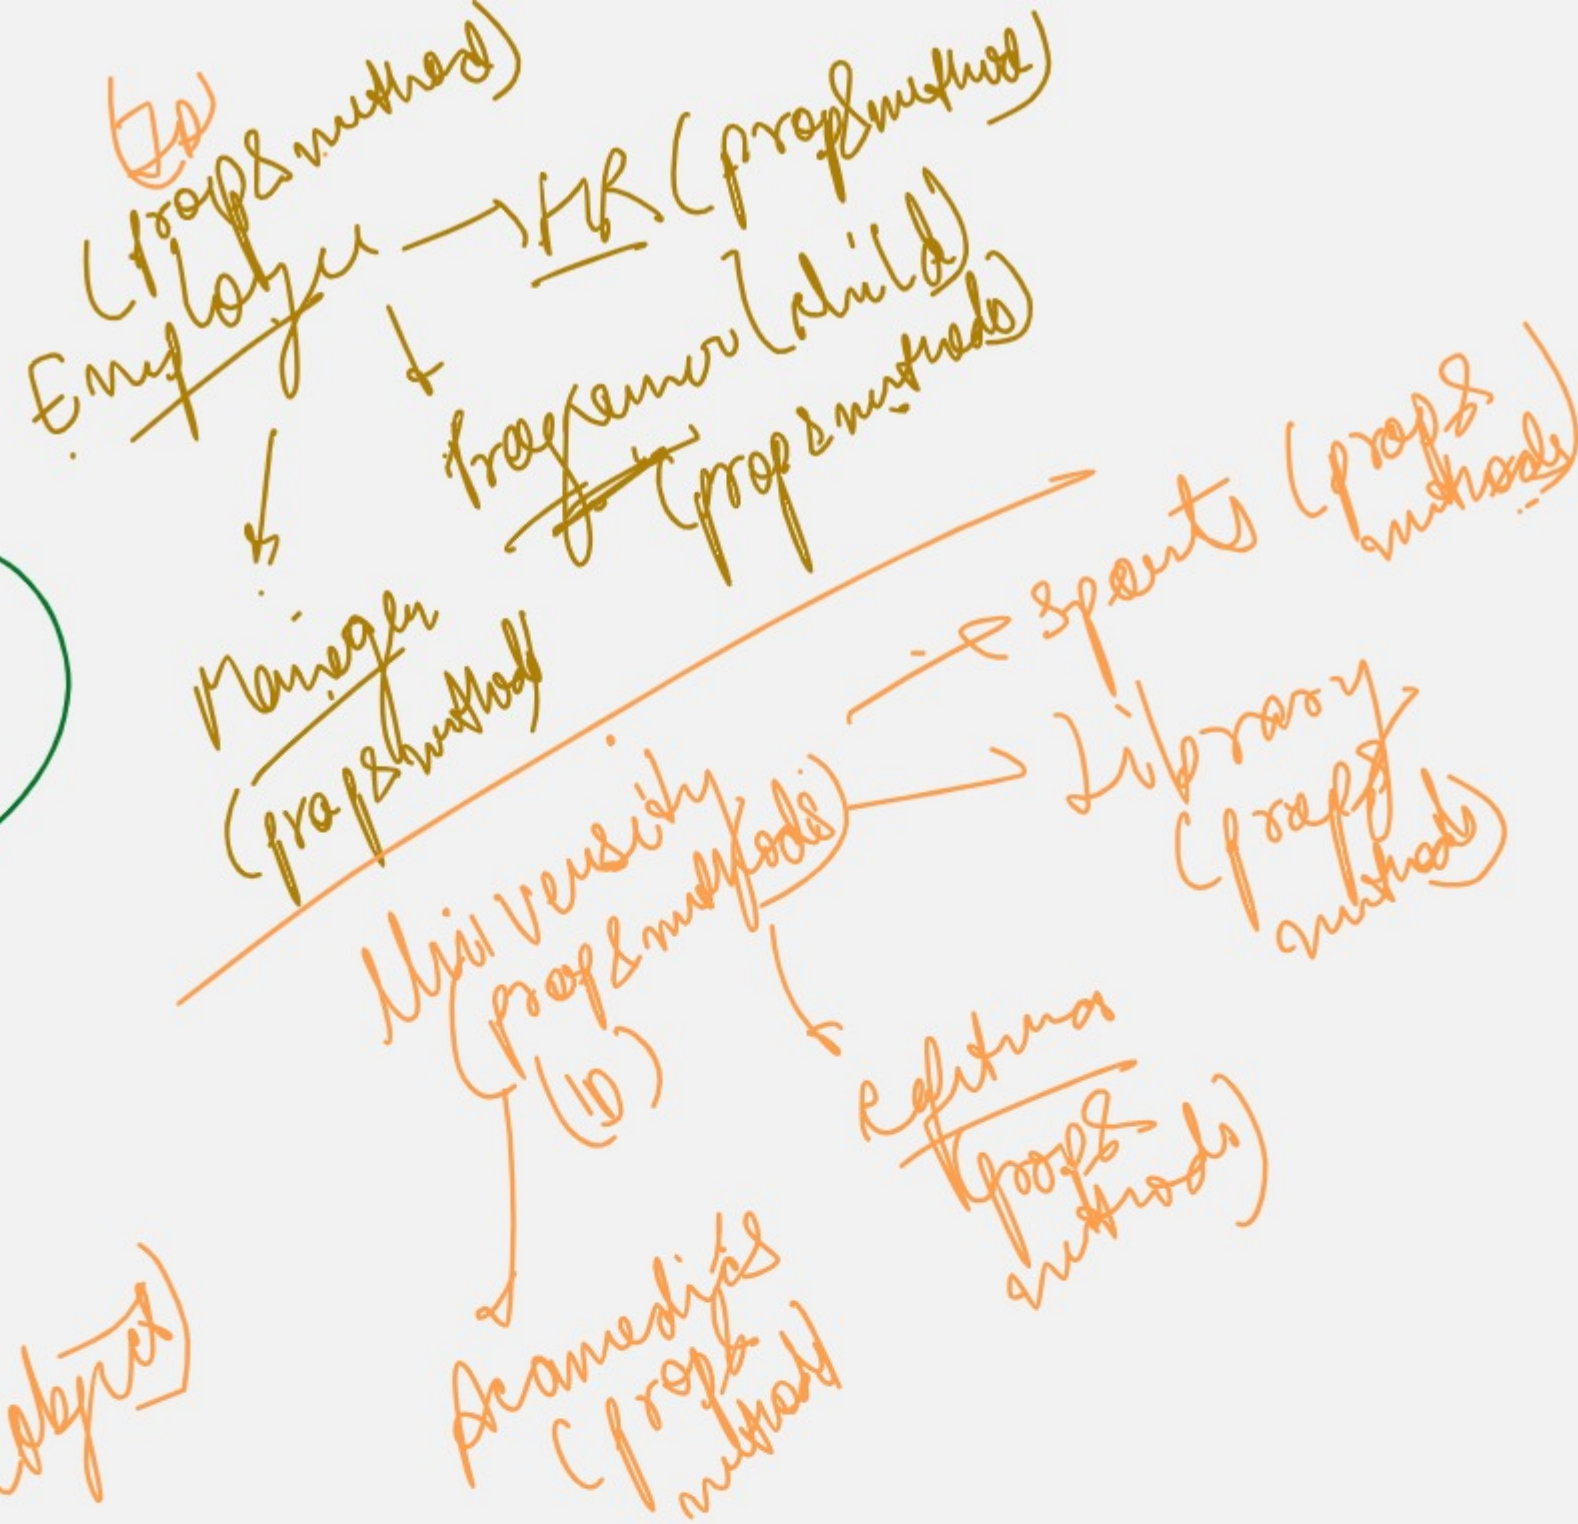 (ID)
(prop & method)
Employee
HR (prop & method)
Programer (child)
(prop & methods)
Manager
(prop & method)
Sports (prop &
methods)
Library
(prop &
methods)
University
(prop & methods)
(ID)
(prop &
methods)
Acamedics
(prop &
method)
object)